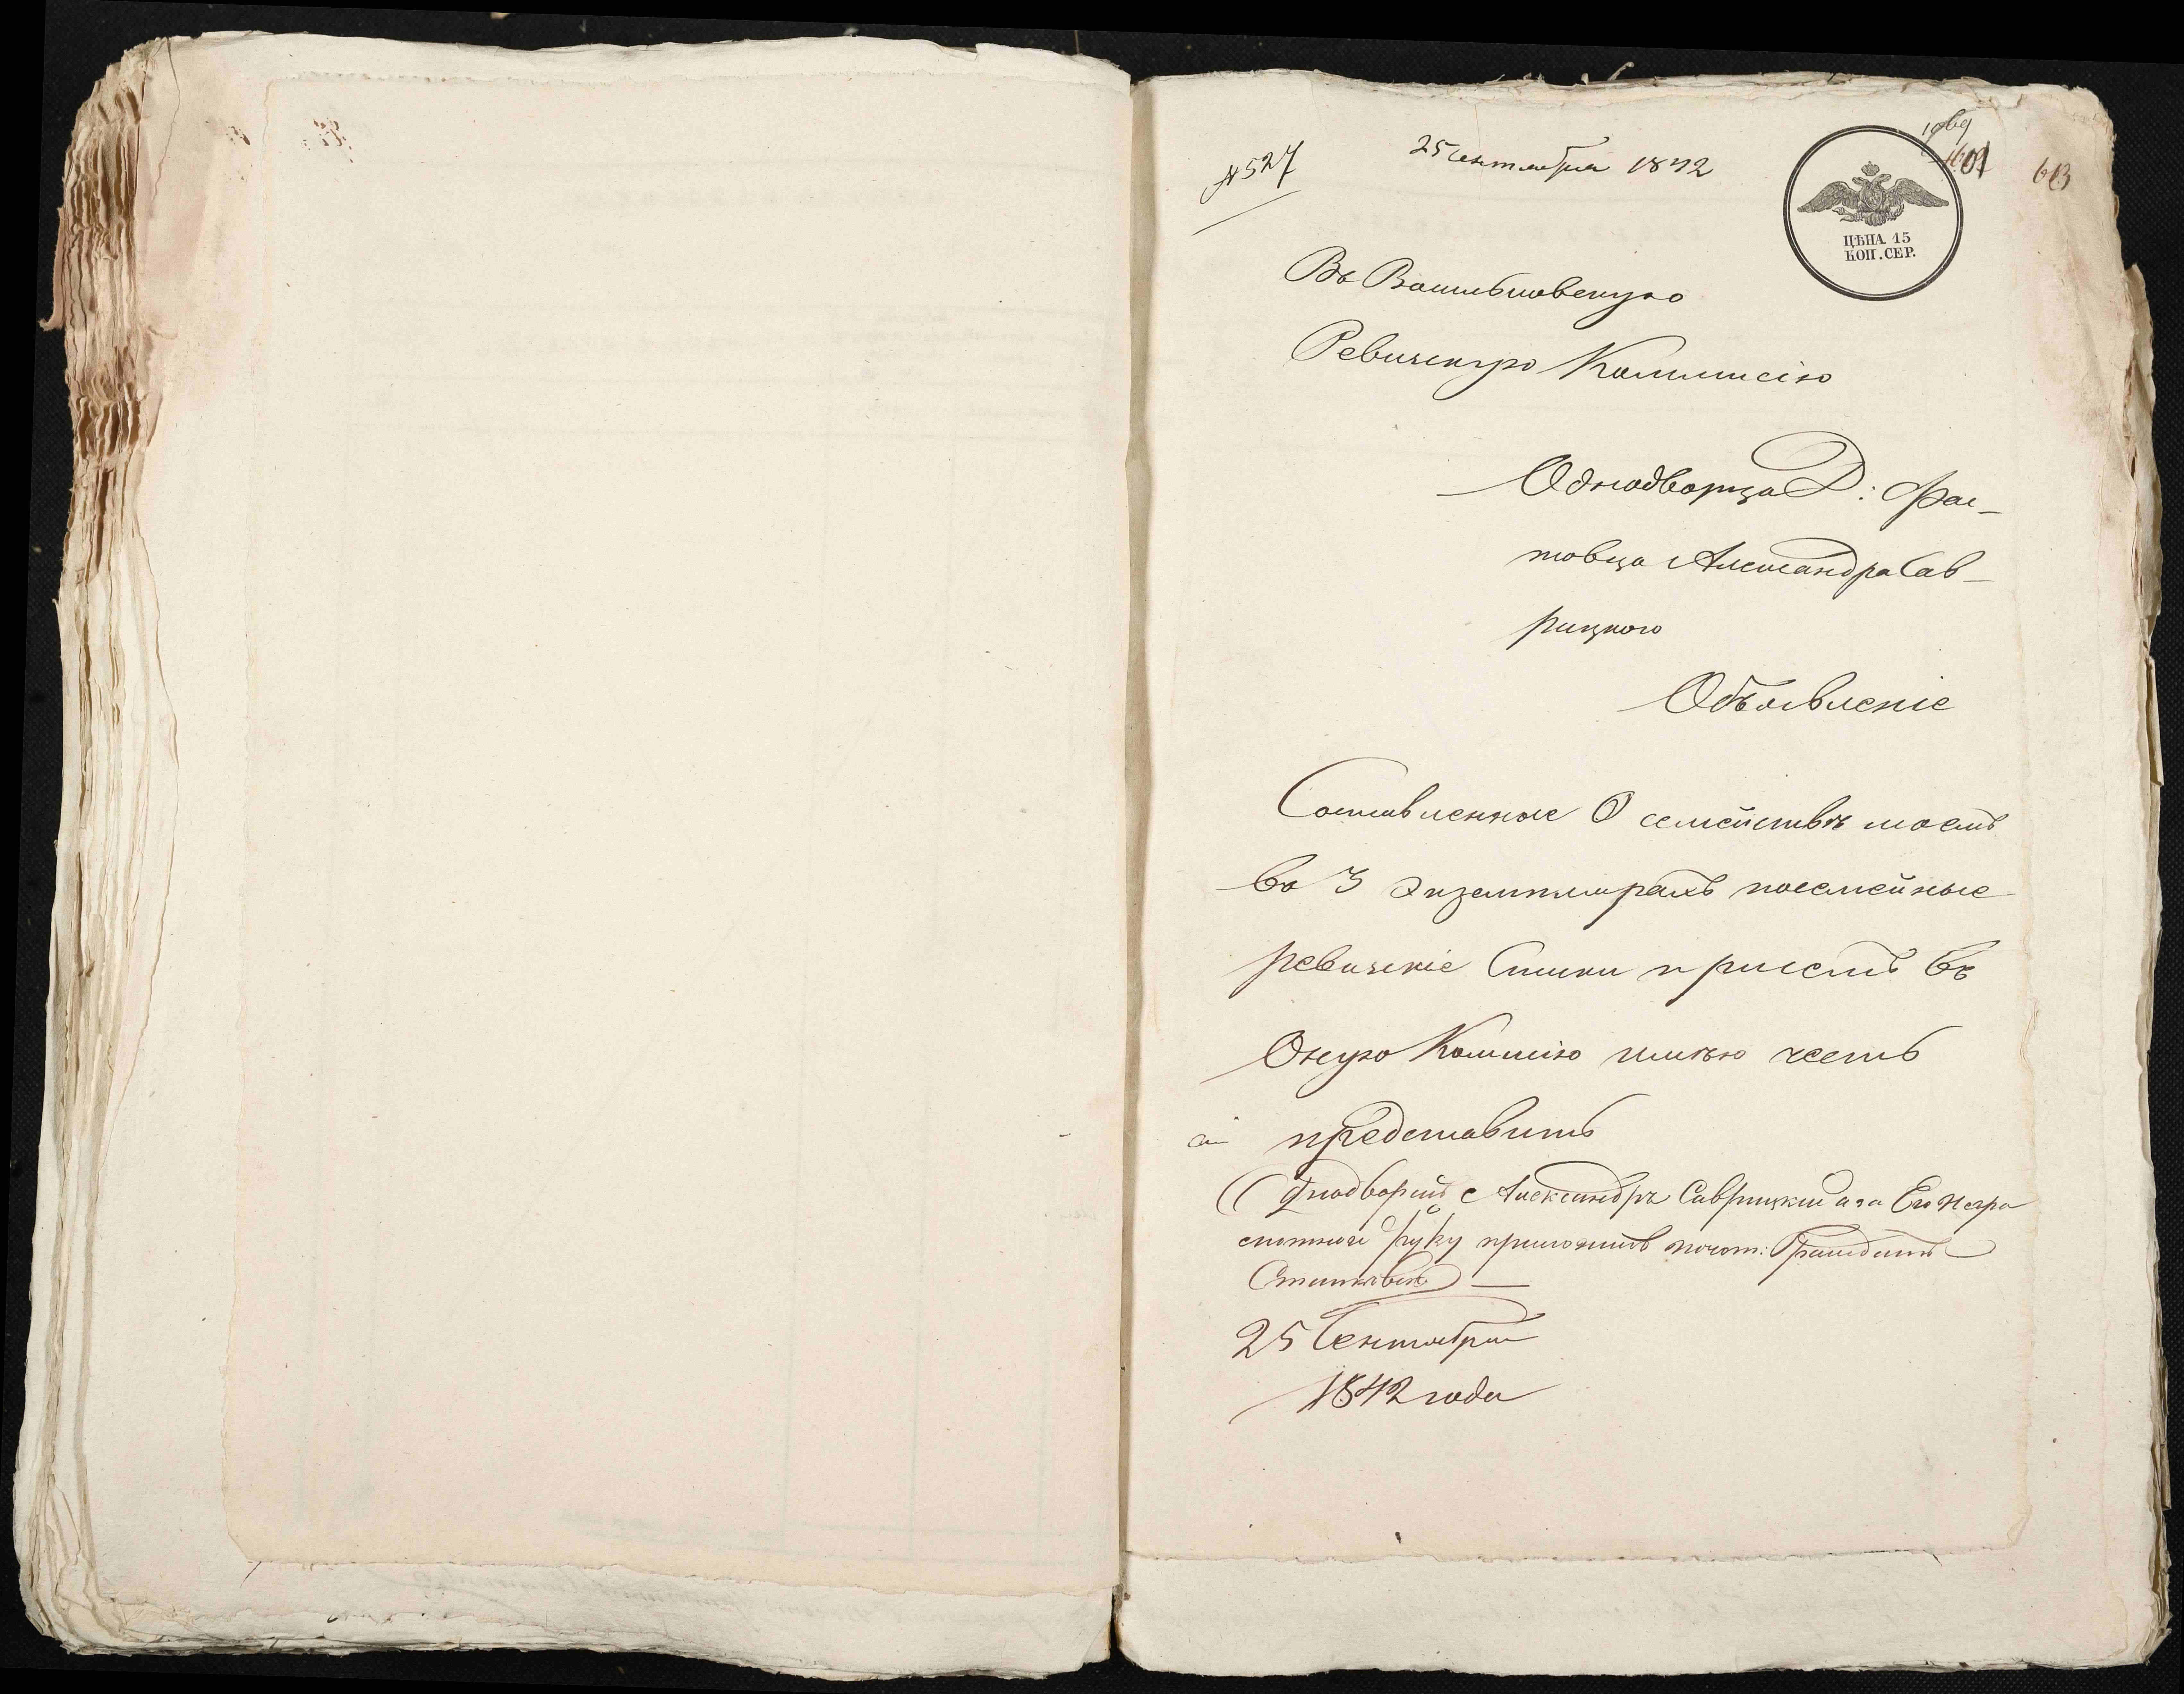 № 527
25 Сентября 1842
601
613
ЦѢНА 15
КОП. СЕР.
Въ Васильковскую
Ревизскую Коммисію
Однодворца Д: Фас-
товца Александра Сав-
рицкого
Объявленіе
Составленные О семействѣ моемъ
въ 3 экземплярахъ посемейные
ревизскіе Списки при семъ въ
Оную Коммисію имѣю честь
представить
Однодворецъ Александръ Саврицкій а за Его негра
мотного руку приложилъ почот: Гражданинъ
25 Сентября
1842 года